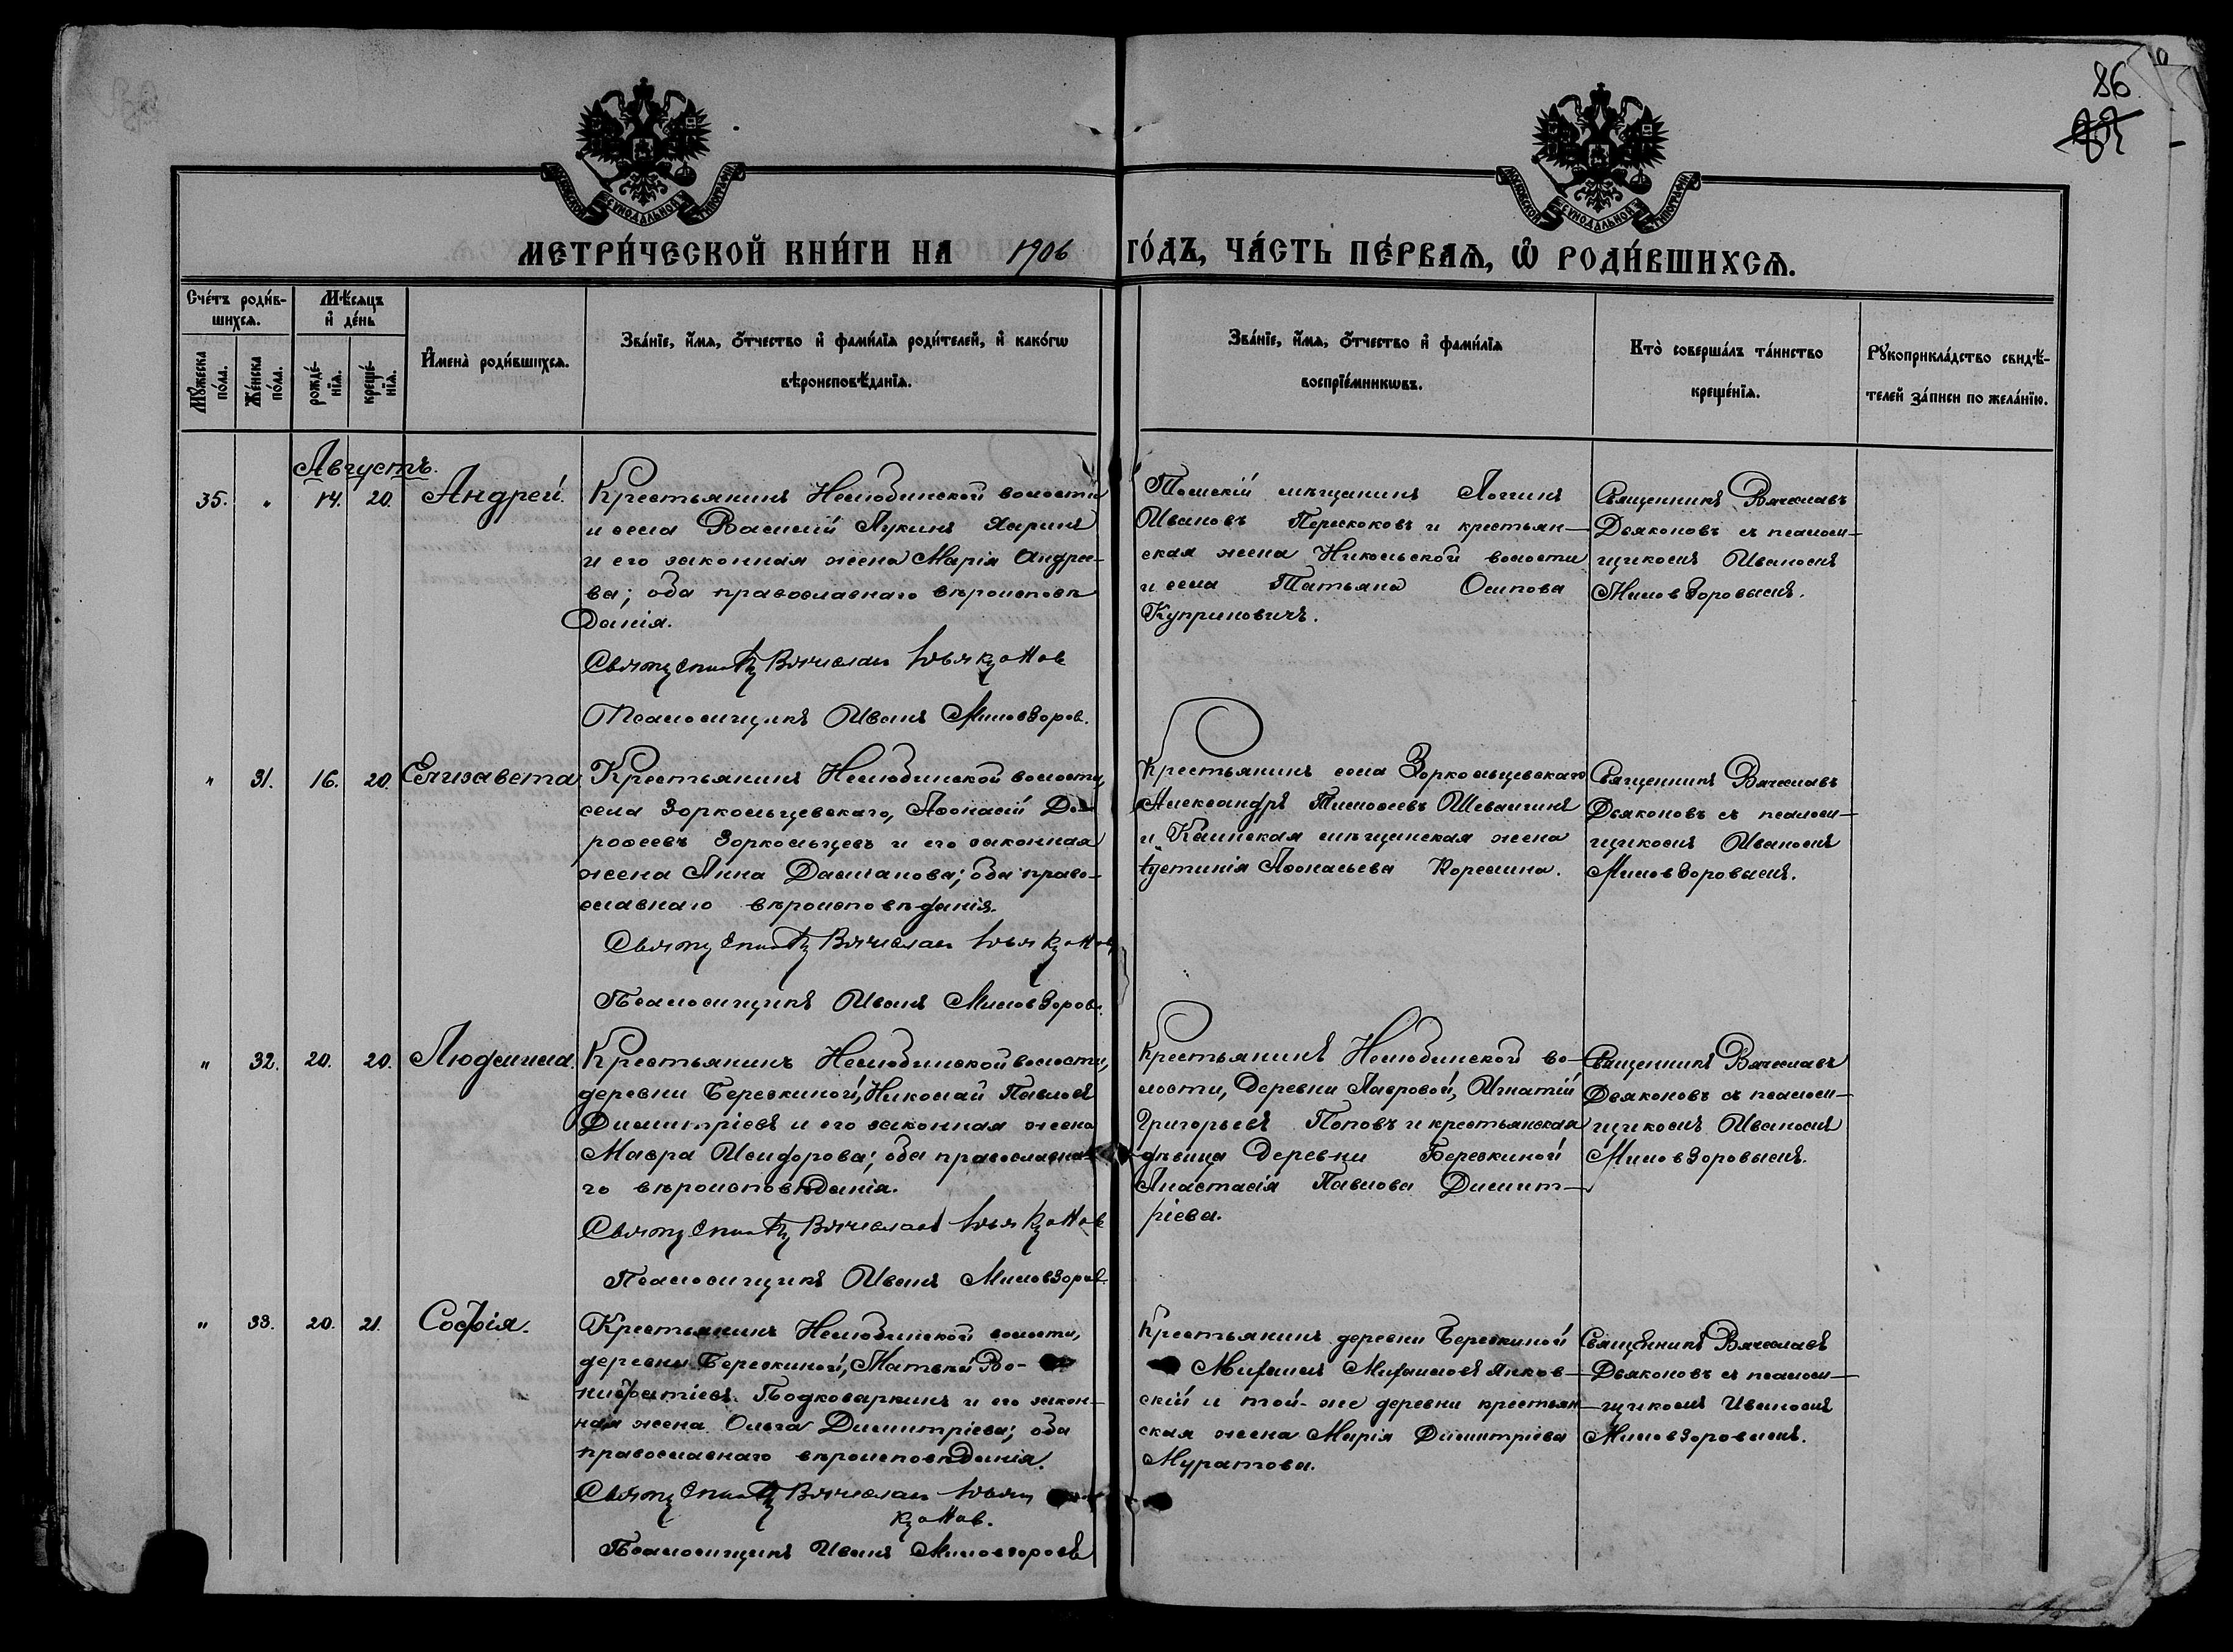 86
МОСКОВСКОЙ СѴНОДАЛЬНОЙ ТИПОГРАФІИ
МОСКОВСКОЙ СѴНОДАЛЬНОЙ ТИПОГРАФІИ
МЕТРИ́ЧЕСКОЙ КНИ́ГИ НА 1906 ГО́ДЪ, ЧА́СТЬ ПЕ́РВАѦ, Ѡ҆ РОДИ́ВШИХСѦ.
Сче́тъ роди́в-
шихсѧ.
Мѣ́сѧцъ
и҆ де́нь
Мꙋ́жеска по́ла.
Же́нска по́ла.
рожде́-нїѧ.
креще́-нїѧ.
И҆мена̀ роди́вшихсѧ.
Зва́нїе, и҆́мѧ, ѻ҆́тчество и҆ фами́лїѧ роди́телей, и҆ како́гѡ
вѣроисповѣ́данїѧ.
Зва́нїе, и҆́мѧ, ѻ҆́тчество и҆ фами́лїѧ
воспрїе́мникѡвъ.
Кто̀ соверша́лъ та́инство
креще́нїѧ.
Рꙋкоприкла́дство свидѣ́-
телей за́писи по жела́нїю.
Августъ.
35. " 14. 20. Андрей.
Крестьянинъ Нелюбинской волости
и села Василій Лукинъ Ларинъ
и его законная жена Марія Андрее-
ва; оба православнаго вѣроисповѣ
данія.
Священникъ Вячеслав Дьяконов
Псаломщикъ Иванъ Миловзоров.
Томскій мѣщанинъ Логинъ
Ивановъ Перескоковъ и крестьян-
ская жена Никольской волости
и села Татьяна Осипова
Куприновичъ.
Священникъ Вячеславъ
Дьяконовъ съ псалом-
щикомъ Иваномъ
Миловзоровымъ.
" 31. 16. 20. Елизавета.
Крестьянинъ Нелюбинской волости,
села Зоркольцевскаго, Аѳонасій До-
роѳеевъ Зоркольцевъ и его законная
жена Анна Дасманова; оба право-
славнаго вѣроисповѣданія.
Священникъ Вячеслав Дьяконов
Псаломщикъ Иванъ Миловзоров.
Крестьянинъ села Зоркольцевскаго
Александръ Тимоѳеевъ Шевалгинъ
и Каинская мѣщанская жена
Устинія Аѳонасьева Корелина.
Священникъ Вячеславъ
Дьяконовъ съ псалом-
щикомъ Иваномъ
Миловзоровымъ.
" 32. 20. 20. Людмила.
Крестьянинъ Нелюбинской волости,
деревни Березкиной, Николай Павловъ
Димитріевъ и его законная жена
Мавра Исидорова; оба православна-
го вѣроисповѣданія.
Священникъ Вячеслав Дьяконов
Псаломщикъ Иванъ Миловзоров.
Крестьянинъ Нелюбинской во-
лости, деревни Лавровой, Игнатій
Григорьевъ Поповъ и крестьянская
дѣвица деревни Березкиной
Анастасія Павлова Димит-
ріева.
Священникъ Вячеславъ
Дьяконовъ съ псалом-
щикомъ Иваномъ
Миловзоровымъ.
" 33. 20. 21. Софія.
Крестьянинъ Нелюбинской волости,
деревни Березкиной, Матвѣй Во-
нифатіевъ Подковыркинъ и его закон-
ная жена Ольга Димитріева; оба
православнаго вѣроисповѣданія.
Священникъ Вячеслав Дьяконов.
Псаломщикъ Иванъ Миловзоровъ
Крестьянинъ деревни Березкиной
Михаилъ Михаиловъ Янков-
скій и той-же деревни крестьян-
ская жена Марія Димитріева
Муратова.
Священникъ Вячеславъ
Дьяконовъ съ псалом-
щикомъ Иваномъ
Миловзоровымъ.